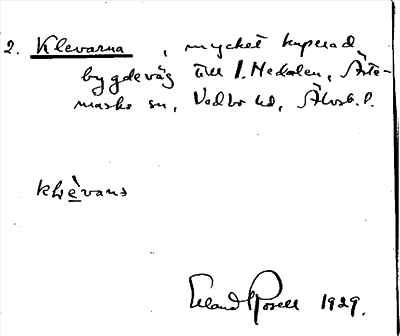 2. Klevarna, mycket kuperad
bygdeväg till I. Nedalen, Ärte-
marks sn, Vedbo hd, Älvsb. l.
klèvans
Erland Rosell 1929.